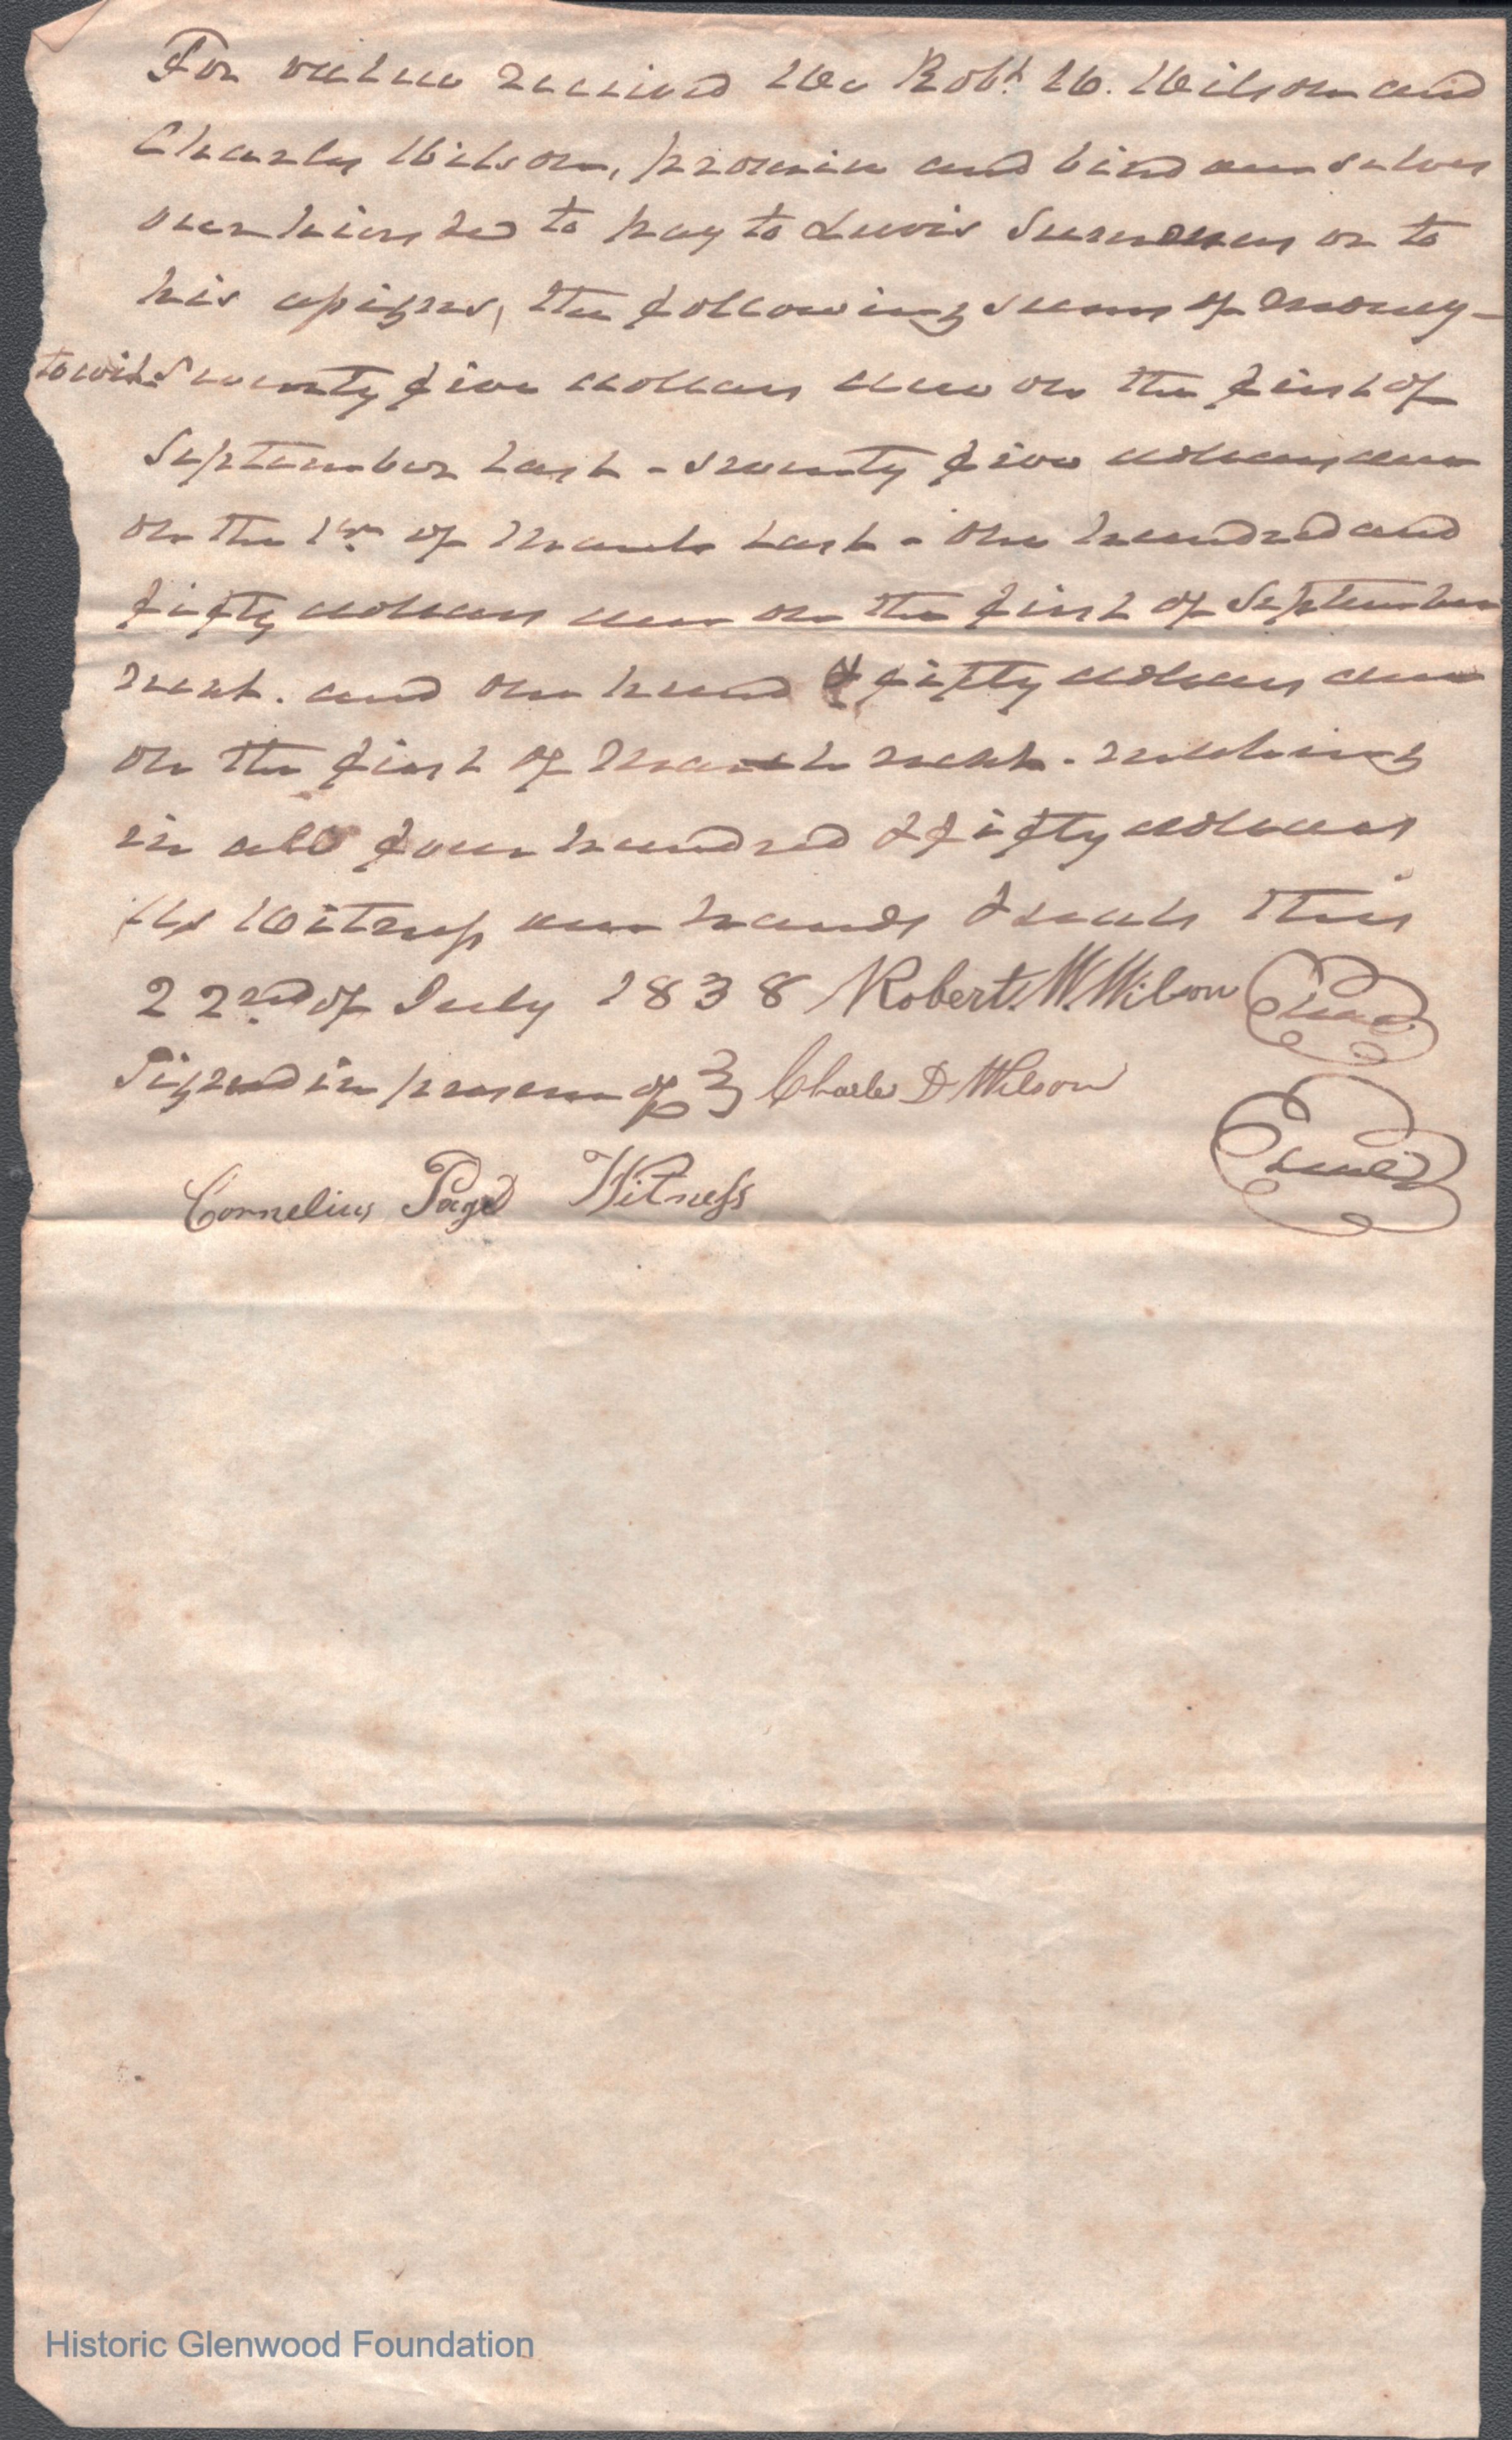 For value received We Robt. W. Wilson and
Charles Wilson, promise and bind ourselves
our heirs &c to pay to Lewis Summers or to
his assigns, the following sums of money—
towit: Seventy five dollars due on the first of
September last - seventy five dollars due
on the 1st of March last - one hundred and
fifty dollars due on the first of September
next. and one hund & fifty dollars due
on the first of March next. making
in all four hundred & fifty dollars
As Witness our hands & seals this
22nd of July 1838 Robert. W. Wilson Seal
Signed in presence of } Charles D Wilson Seal
Cornelius Page Witness
Historic Glenwood Foundation